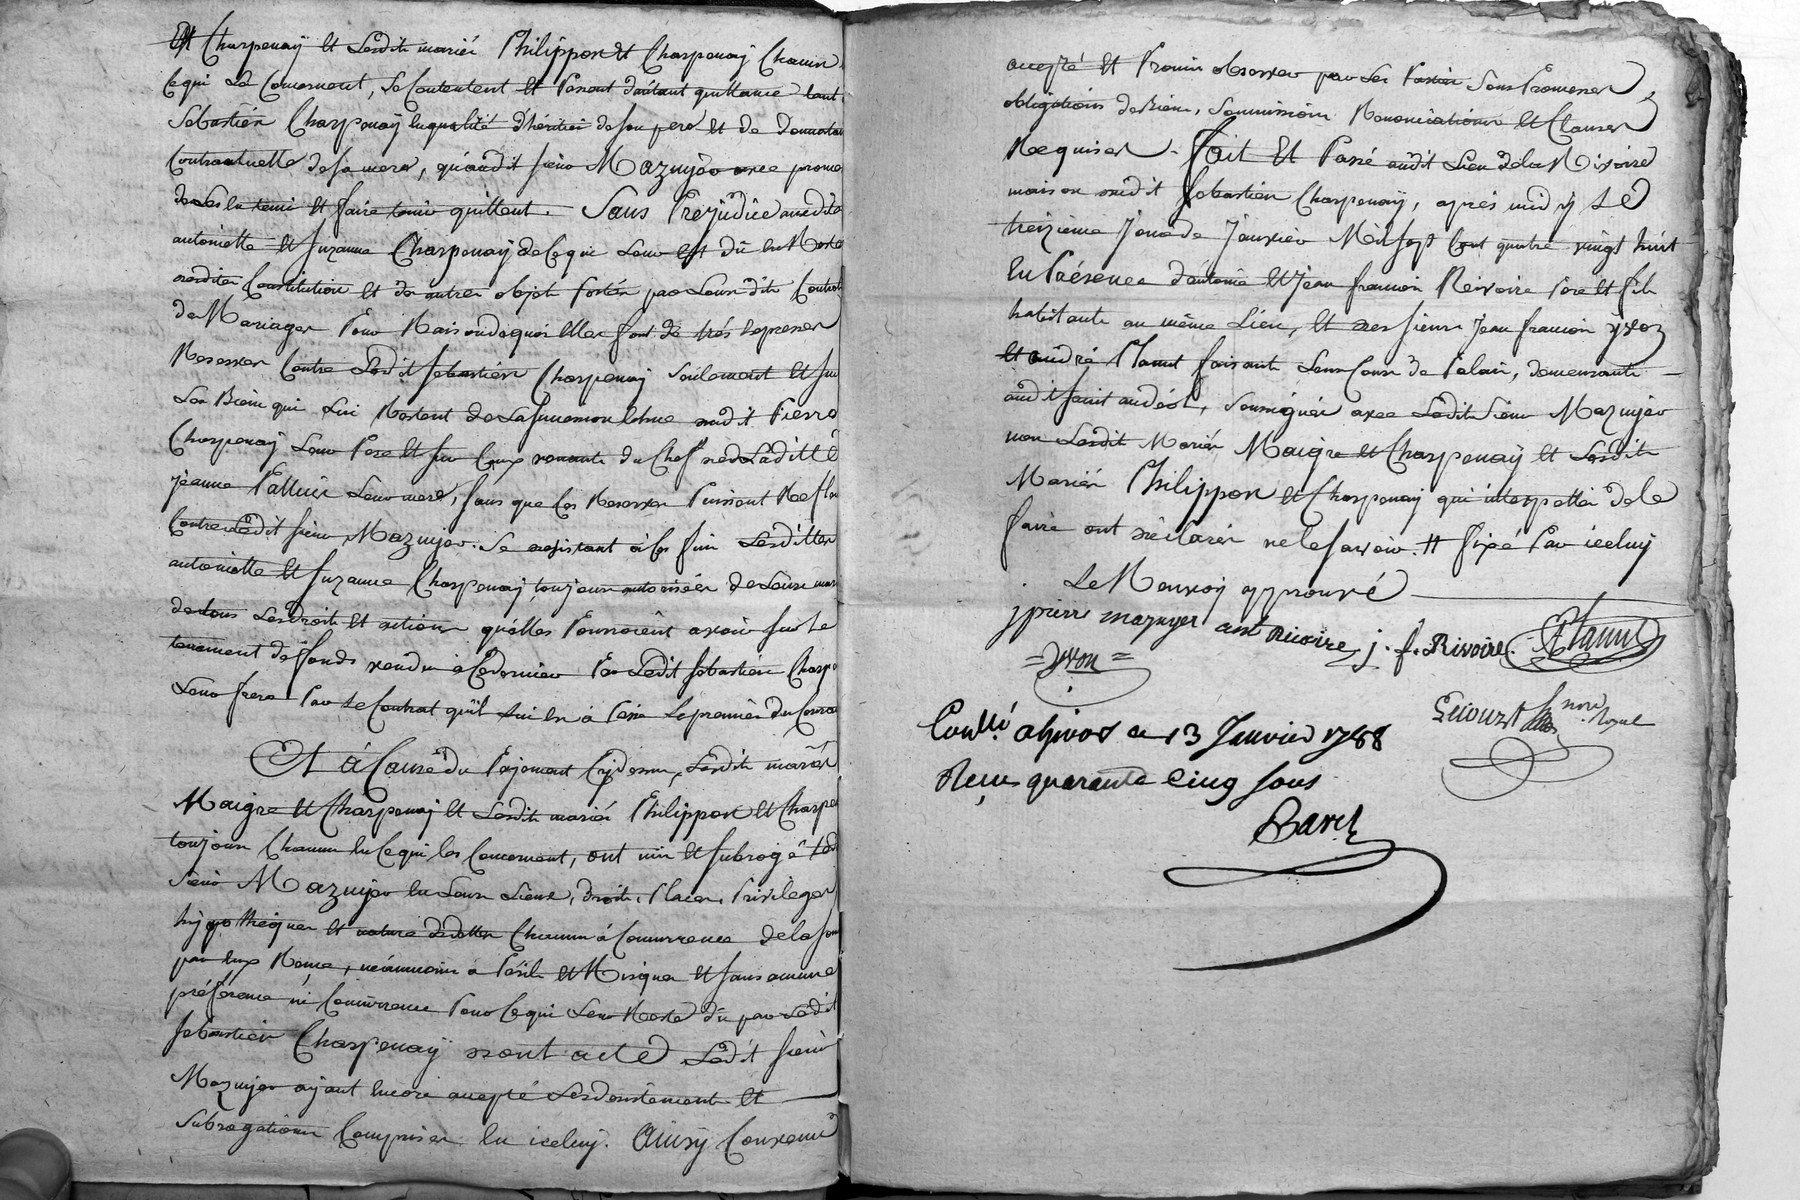 Et Charpenaÿ et Lesdits mariés Philippon et Charpenaÿ Chacun
Ce qui Le Concernent, Se Contentent Et Passent d'autant quittance tant
Sebastien Charpenaÿ En qualité d'héritier de Son pere et de Donnataire
Contractuelle de Sa mere, qu'audit Sieur Mazuyer avec prome
de Les En tenir et faire tenir quittent. Sans Préjudice auxdites
antoinette et Suzanne Charpenaÿ de Ce qui Leur est dû En Reste
desdites Constitutions et des autres objets portés par Leursdits Contrats
de Mariages Pour Raison de quoi Elles font de très Expresses
Reserves Contre Ledit Sebastien Charpenaÿ Seulement et Sur
Les Biens qui Lui Restent de La Succession Echue dudit Pierre
Charpenaÿ Leur Pere et Sur Ceux venants du Chef de Laditte
jeanne Leur mere, Sans que Ces Reserves Puissent
Contre Ledit Sieur Mazuyer. Se désistant à Ces fins Lesdittes
antoinette et Suzanne Charpenaÿ, toujours autorisées de Leurs maris
de tous Les droits et actions qu'elles Pourroient avoir Sur Le
tenement de fonds vendu à Ce dernier Par Ledit Sebastien Charpe
Leur frere Par Le Contrat qu'il Lui En à Passé Le premier du Courant
Et à Cause du Payement Cydessus, Lesdits mariés
Maigre et Charpenaÿ et Lesdits mariés Philippon et Charpe
toujours Chacun En Ce qui Les Concernent, ont mis et Subrogé Ledit
Sieur Mazuyer En Leurs Lieux, Droits, Places, Privilèges
hypothèques et nature de dettes Chacun à Concurrence de la Som
par Eux Reçue, néanmoins à Périls et Risques et Sans aucune
préférence ni Concurrence Pour Ce qui Leur Reste dû par Ledit
Sebastien Charpenaÿ dont acte Ledit Sieur
Mazuyer ayant Encore accepté Les désistements et
Subrogations Comprises En icelui. Ainsy Convenu
accepté et Promis observer par Les Parties Sous Promesses
obligations de Biens, Soumissions Renonciations et Clauses
Requises. Fait Et Passé audit Lieu de la Rivoire
maison dudit Sebastien Charpenaÿ, après midy Le
treizieme Jour de Janvier Mil Sept Cent quatre vingt huit
En Présence d'antoine et Jean francois Rivoire Pere et fils
habitants au même Lieu, et des Sieurs Jean francois yvon
et andré Plantt faisants Leurs Cours de Palais, demeurants
audit Saint andéol, Soussignés avec Ledit Sieur Mazuyer
non Lesdits Mariés Maigre et Charpenaÿ et Lesdits
Mariés Philippon et Charpenaÿ qui interpellés de le
faire ont déclarés ne le Savoir. # fixé Par icelui
Le Renvoy approuvé
jpierr mazuyer ant Rivoire j. f. Rivoire Plantt
= yvon =
nore Royal
Conllé a le 13 Janvier 1788
Reçu quarante Cinq Sous
Baret